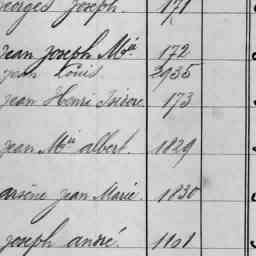 Georges Joseph. 171
Jean Joseph Mie 172
Jean Louis 3935
Jean Henri Isidore. 173
Jean Mie albert. 1829
arsène Jean Marie. 1830
Joseph andré. 1101